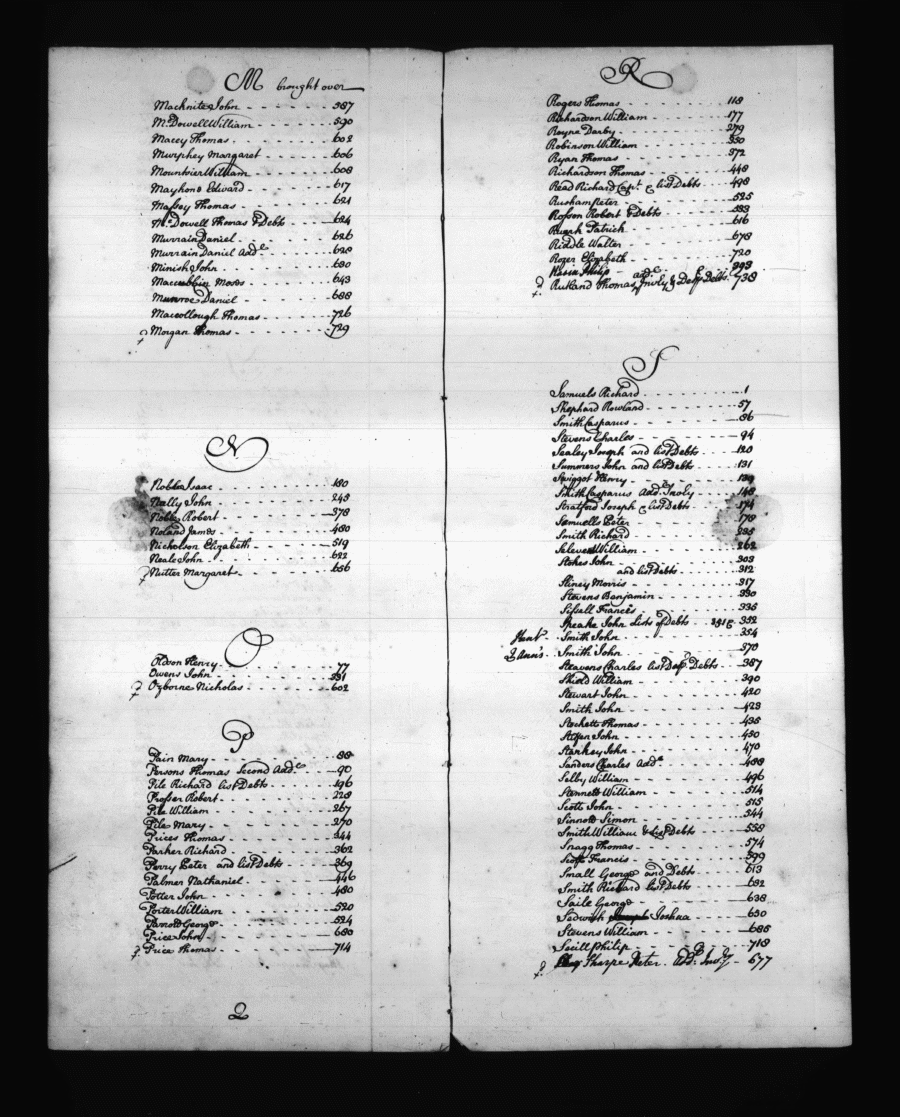 M brought over
Macknite John 387
Mc. Dowell William 590
Macey Thomas 602
Murphey Margaret 606
Mountsier William 608
Mayhone Edward 617
Massey Thomas 621
Mc. Dowell Thomas & Debts 624
Murrain Daniel 626
Murrain Daniel Addl. 628
Minish John 630
Maccubbin Moses 643
Munroe Daniel 688
Maccollough Thomas 726
Morgan Thomas 729
N
Noble Isaac 180
Nally John 245
Noble Robert 378
Noland James 480
Nicholson Elizabeth 519
Neale John 622
Nutter Margaret 656
O
Oldson Henry 77
Owens John 391
Ozborne Nicholas 602
P
Pain Mary 88
Persons Thomas second Addl. 90
Pile Richard list Debts 196
Prosser Robert 223
Pile William 267
Pile Mary 270
Prices Thomas 344
Parker Richard 362
Perry Peter and list Debts 369
Palmer Nathaniel 446
Potter John 480
Porter William 520
Parrott George 524
Price John 680
Price Thomas 714
Q
R
Rogers Thomas 118
Richardson William 177
Royne Darby 279
Robinson William 350
Ryan Thomas 372
Richardson Thomas 448
Read Richard Capt. & list Debts 498
Rusham Peter 525
Rosson Robert & Debts 583
Patrick 616
Riddle Walter 678
Rozer Elizabeth 720
Philip 393
Rutland Thomas addl. Invty & Desp Debts 738
S
Samuels Richard 1
Shephard Rowland 57
Smith Casparus 86
Stevens Charles 94
Sealey Joseph and list Debts 120
Summers John and list Debts 131
Swiggot Henry 139
Smith Casparus Addl. Invty 148
Stratford Joseph & list Debts 174
Samuells Peter 178
Smith Richard 235
William 262
Stokes John 303
and list Debts 312
Sliney Morris 317
Stevens Benjamin 330
Sissell Francis 335
Speake John Lists of Debts 351 & 352
Kent Smith John 354
Q Ann's Smith John 370
Steavens Charles list Desp. Debts 387
Shield William 390
Stewart John 420
Smith John 423
Stockett Thomas 435
John 450
Starkey John 470
Sanders Charles Addl. 488
Selby William 496
Stennett William 514
Scott John 515
Sinnott Simon 544
Smith William & list Debts 558
Snagg Thomas 574
Scott Francis 599
Small George and Debts 613
Smith Richard list Debts 632
Saile George 638
Sedwith Joshua 650
Stevens William 686
Philip 718
Sharpe Peter. Addl. Invty 677